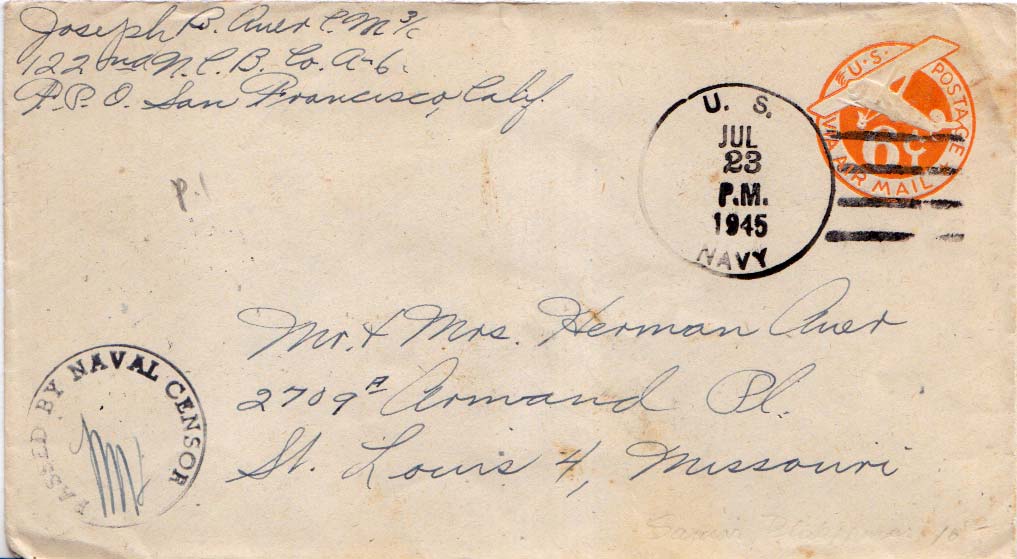 Joseph B. Auer C.M 3/c
122nd N.C.B. Co. A-6.
F.P.O. San Francisco, Calif.
U.S. POSTAGE
6¢
VIA AIR MAIL
U. S.
JUL
23
P.M.
1945
NAVY
P.1
Mr. & Mrs. Herman Auer
2709A Armand Pl.
St. Louis 4, Missouri
PASSED BY NAVAL CENSOR